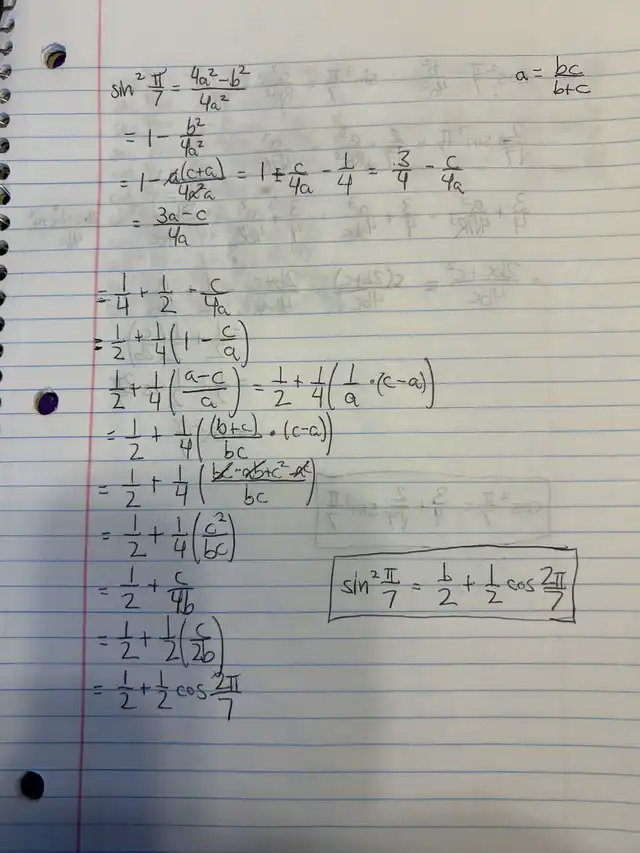 sin² π/7 = (4a² - b²)/(4a²)
a = bc/(b+c)
= 1 - b²/(4a²)
= 1 - a(c+a)/(4a²a) = 1 ± c/(4a) - 1/4 = 3/4 - c/(4a)
= (3a - c)/(4a)
= 1/4 + 1/2 - c/(4a)
= 1/2 + 1/4(1 - c/a)
1/2 + 1/4((a-c)/a) = 1/2 + 1/4(1/a · (c-a))
= 1/2 + 1/4((b+c)/bc · (c-a))
= 1/2 + 1/4((bc - ab + c² - ac)/bc)
= 1/2 + 1/4(c²/bc)
= 1/2 + c/(4b)
= 1/2 + 1/2(c/2b)
= 1/2 + 1/2 cos 2π/7
sin² π/7 = 1/2 + 1/2 cos 2π/7